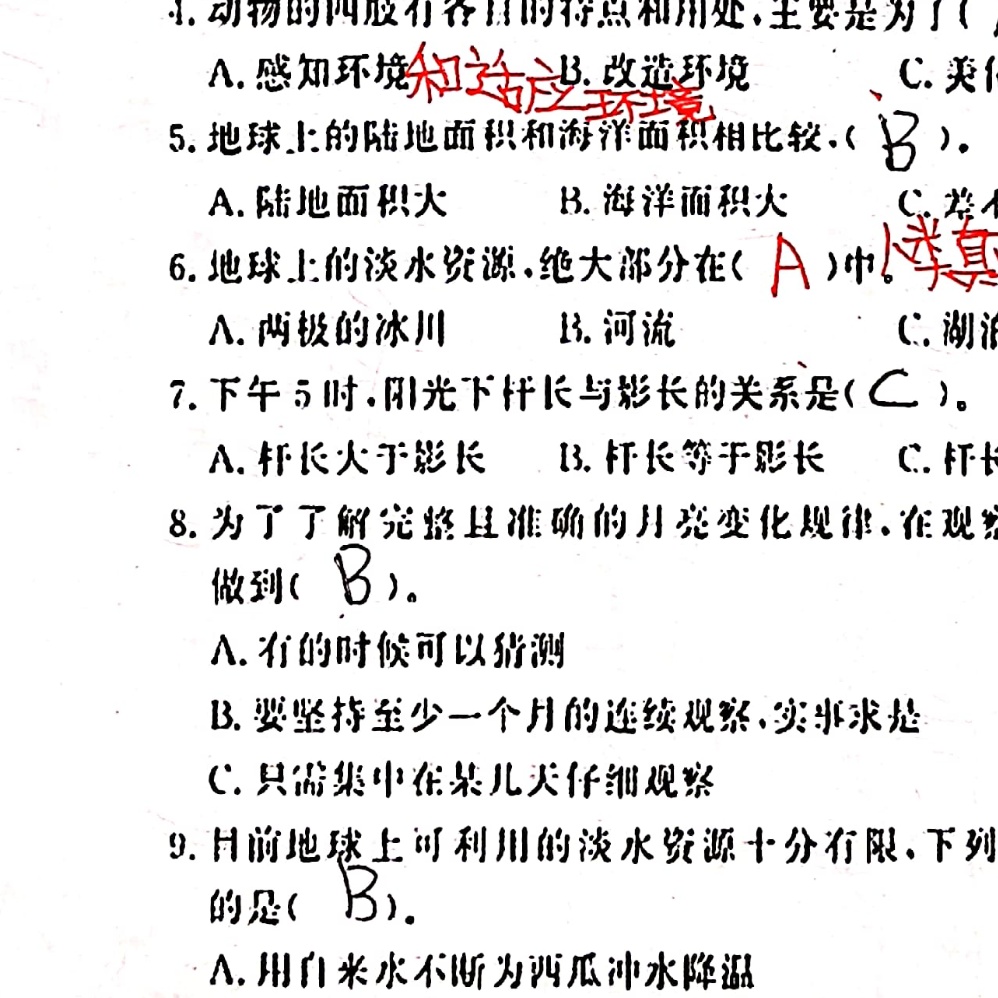 4. 动物的四肢有各自的特点和用处,主要是为了(
A. 感知环境和适应环境 B. 改造环境 C. 美
5. 地球上的陆地面积和海洋面积相比较,( B )。
A. 陆地面积大 B. 海洋面积大 C. 差不
6. 地球上的淡水资源,绝大部分在( A )中。
A. 两极的冰川 B. 河流 C. 湖泊
7. 下午 5 时,阳光下杆长与影长的关系是( C )。
A. 杆长大于影长 B. 杆长等于影长 C. 杆长
8. 为了了解完整且准确的月亮变化规律,在观察
做到( B )。
A. 有的时候可以猜测
B. 要坚持至少一个月的连续观察,实事求是
C. 只需集中在某几天仔细观察
9. 目前地球上可利用的淡水资源十分有限,下列
的是( B ).
A. 用自来水不断为西瓜冲水降温